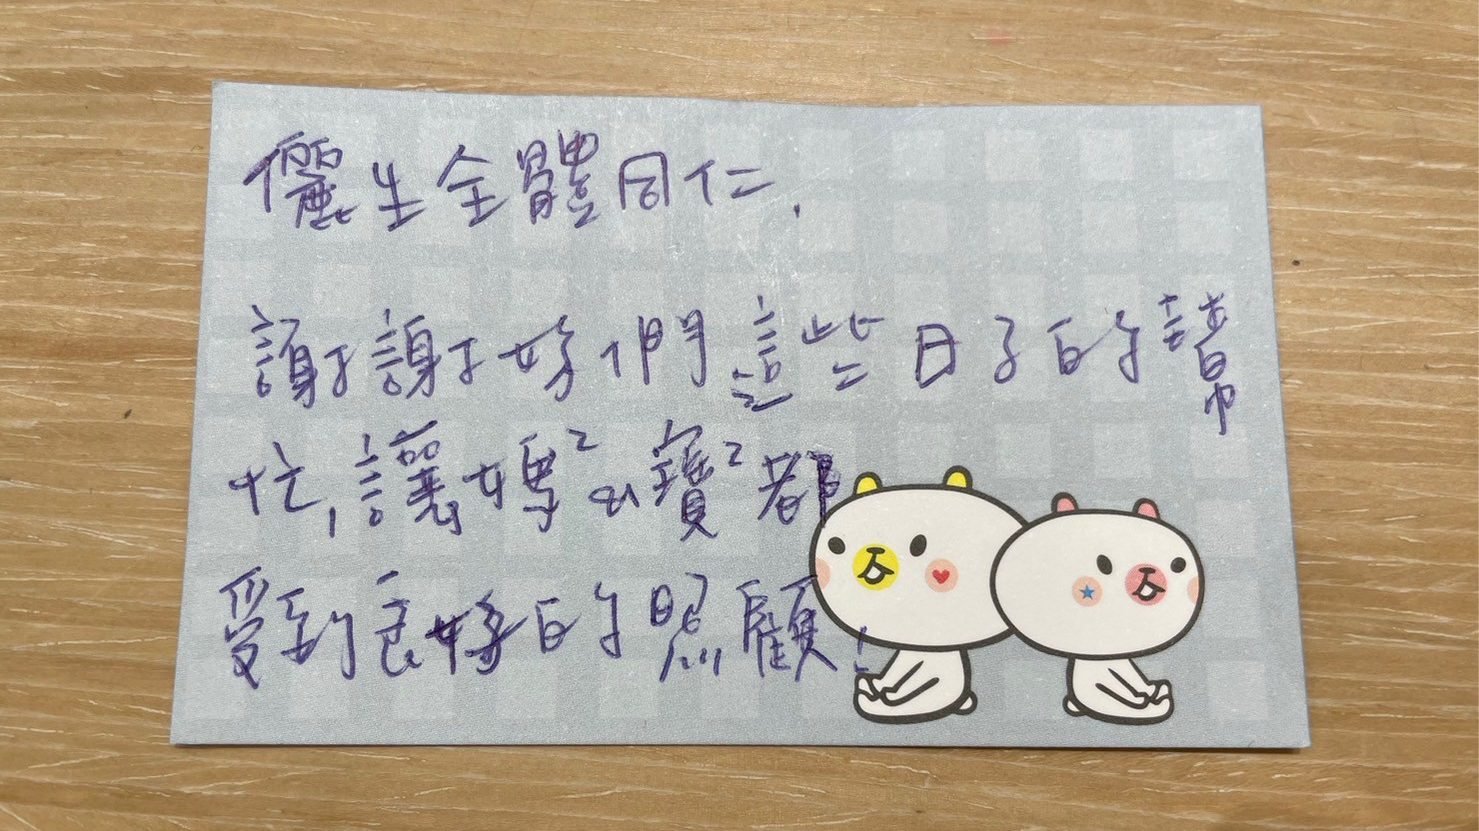 儷生全體同仁,
謝謝妳們這些日子的幫
忙,讓媽²以寶²都
受到良好的照顧!